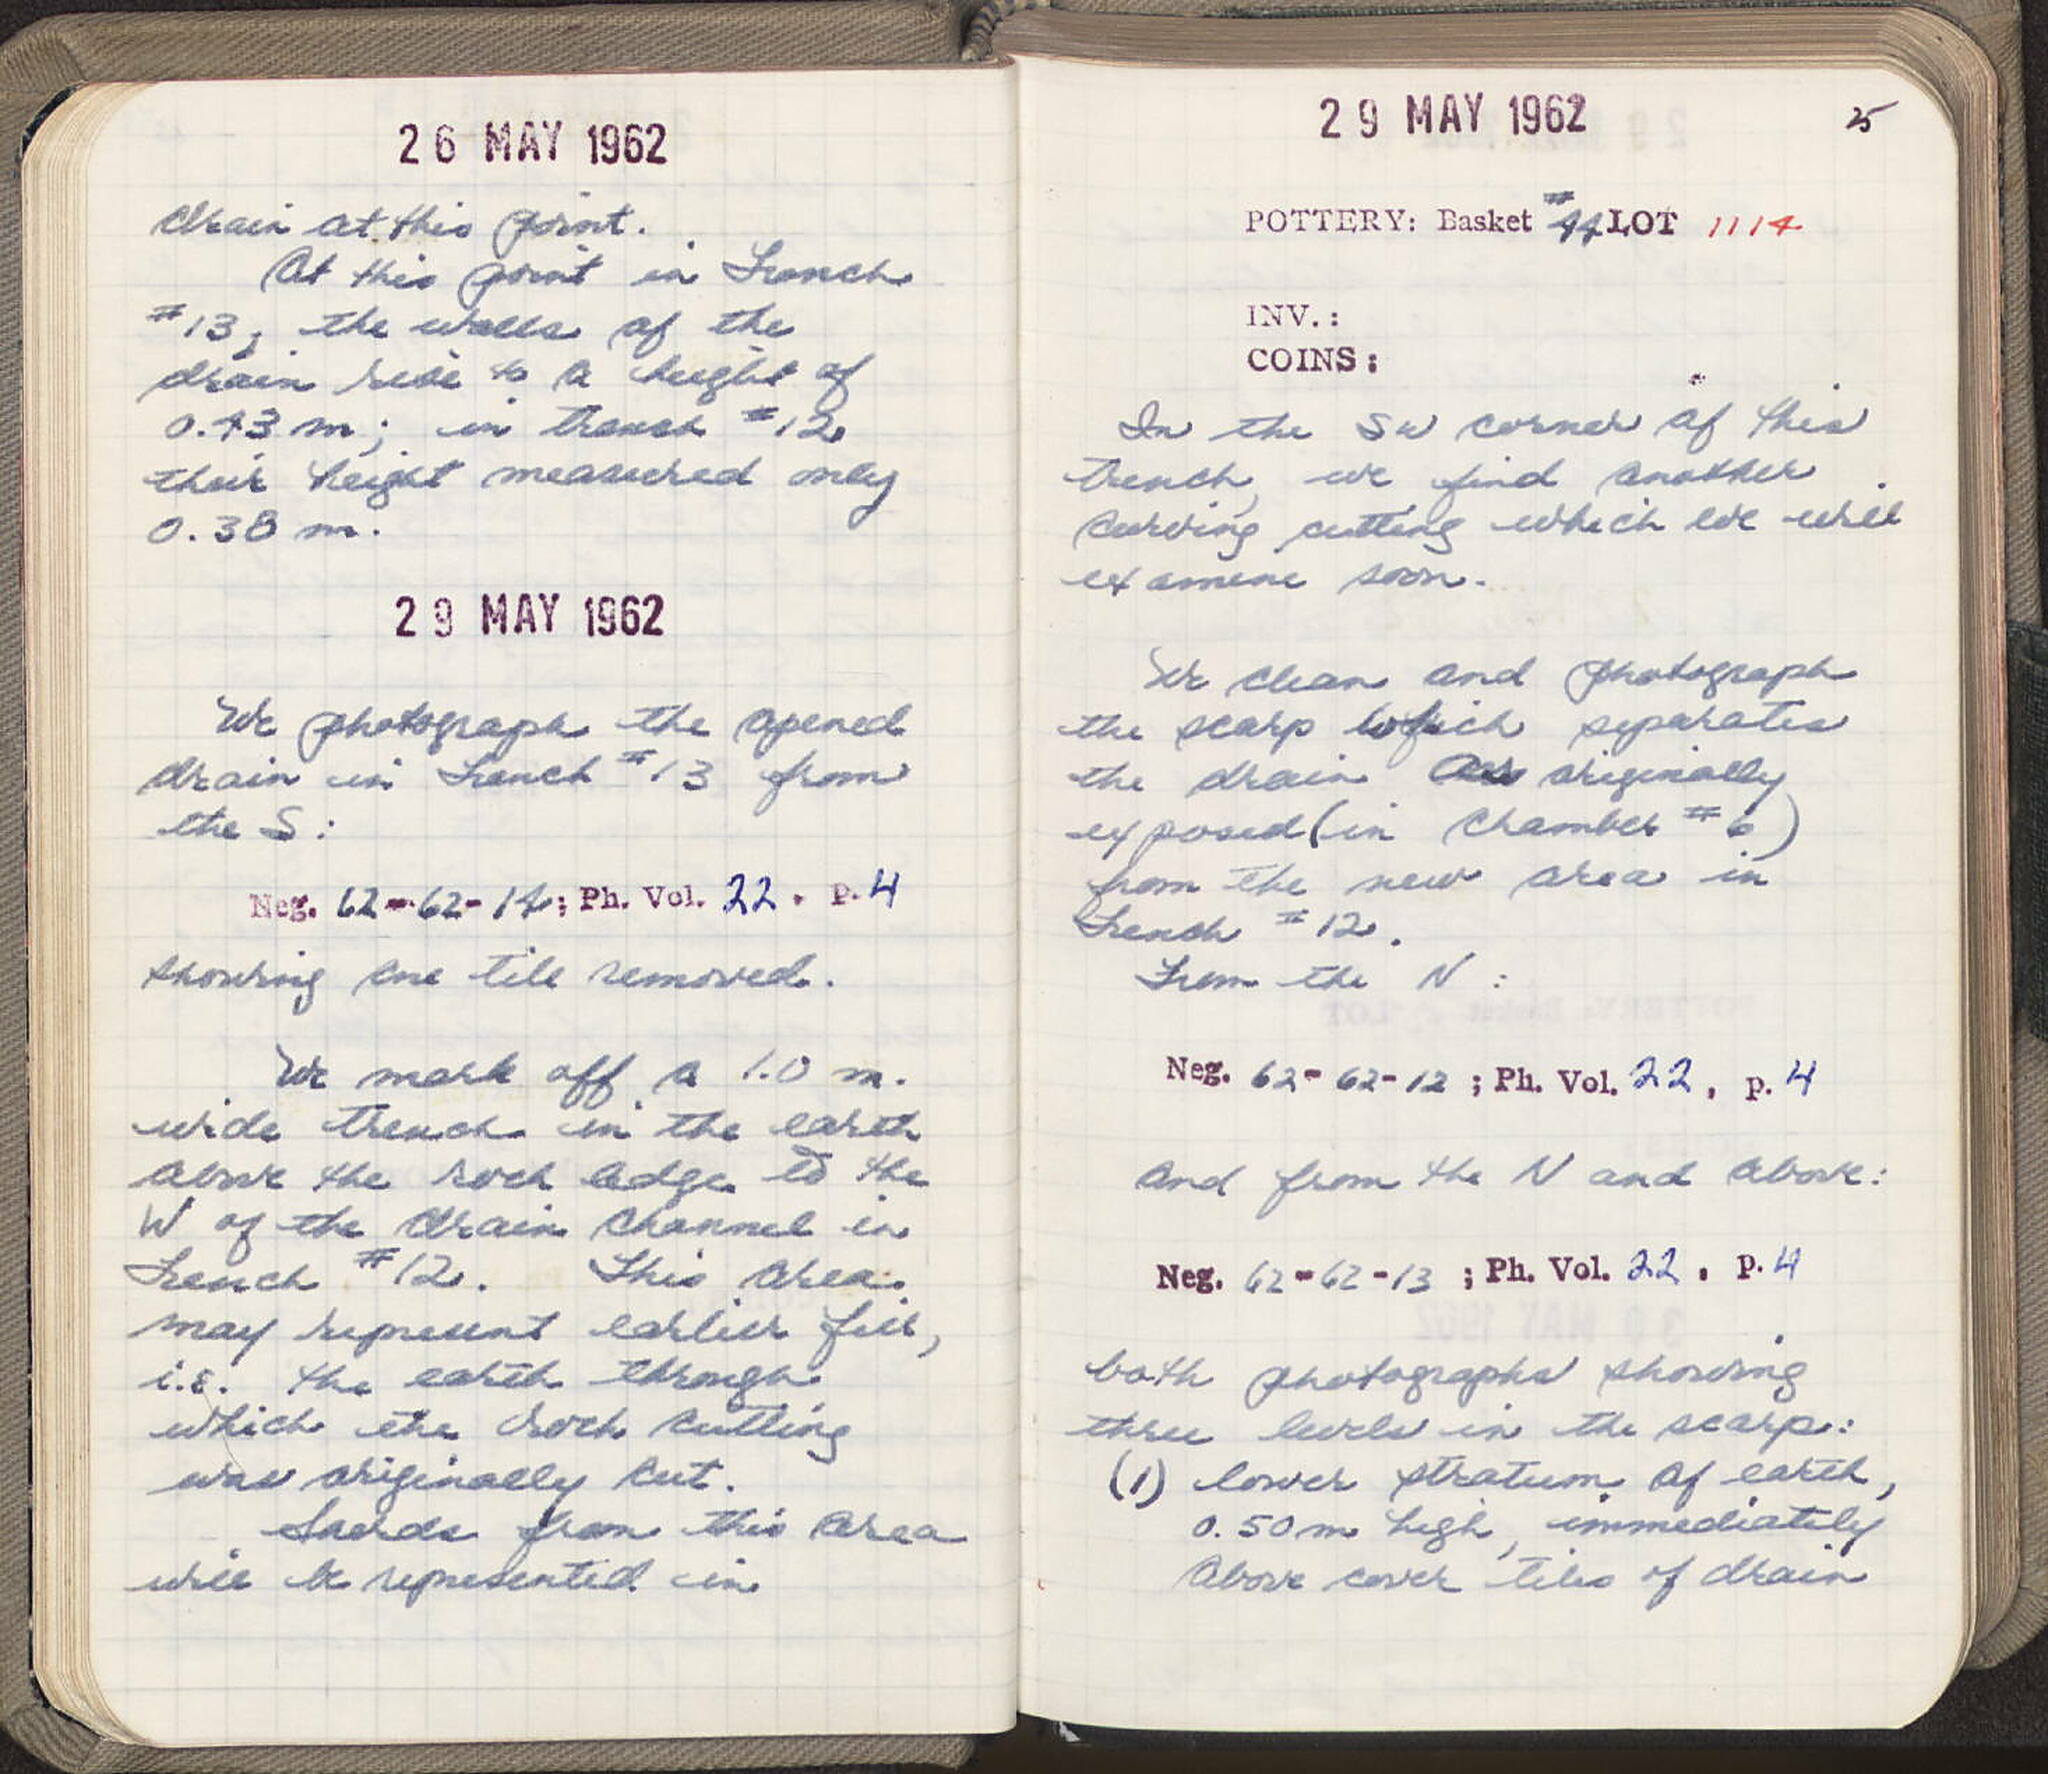 26 MAY 1962
drain at this point.
At this point in Trench
#13, the walls of the
drain rise to a height of
0.43 m; in trench #12
their height measured only
0.38 m.
29 MAY 1962
We photograph the opened
drain in Trench #13 from
the S:
Neg. 62-62-14; Ph. Vol. 22, p. 4
showing one tile removed.
We mark off a 1.0 m.
wide trench in the earth
above the rock ledge to the
W of the drain channel in
Trench #12. This area
may represent earlier fill,
i.e. the earth through
which the rock cutting
was originally cut.
Sherds from this area
will be represented in
29 MAY 1962
25
POTTERY: Basket #44 LOT 1114
INV.:
COINS:
In the SW corner of this
trench, we find another
curving cutting which we will
examine soon.
We clean and photograph
the scarp which separates
the drain as originally
exposed (in Chamber #6)
from the new area in
Trench #12.
From the N:
Neg. 62-62-12; Ph. Vol. 22, p. 4
and from the N and above:
Neg. 62-62-13; Ph. Vol. 22, p. 4
both photographs showing
three levels in the scarp:
(1) lower stratum of earth,
0.50 m high, immediately
above cover tiles of drain